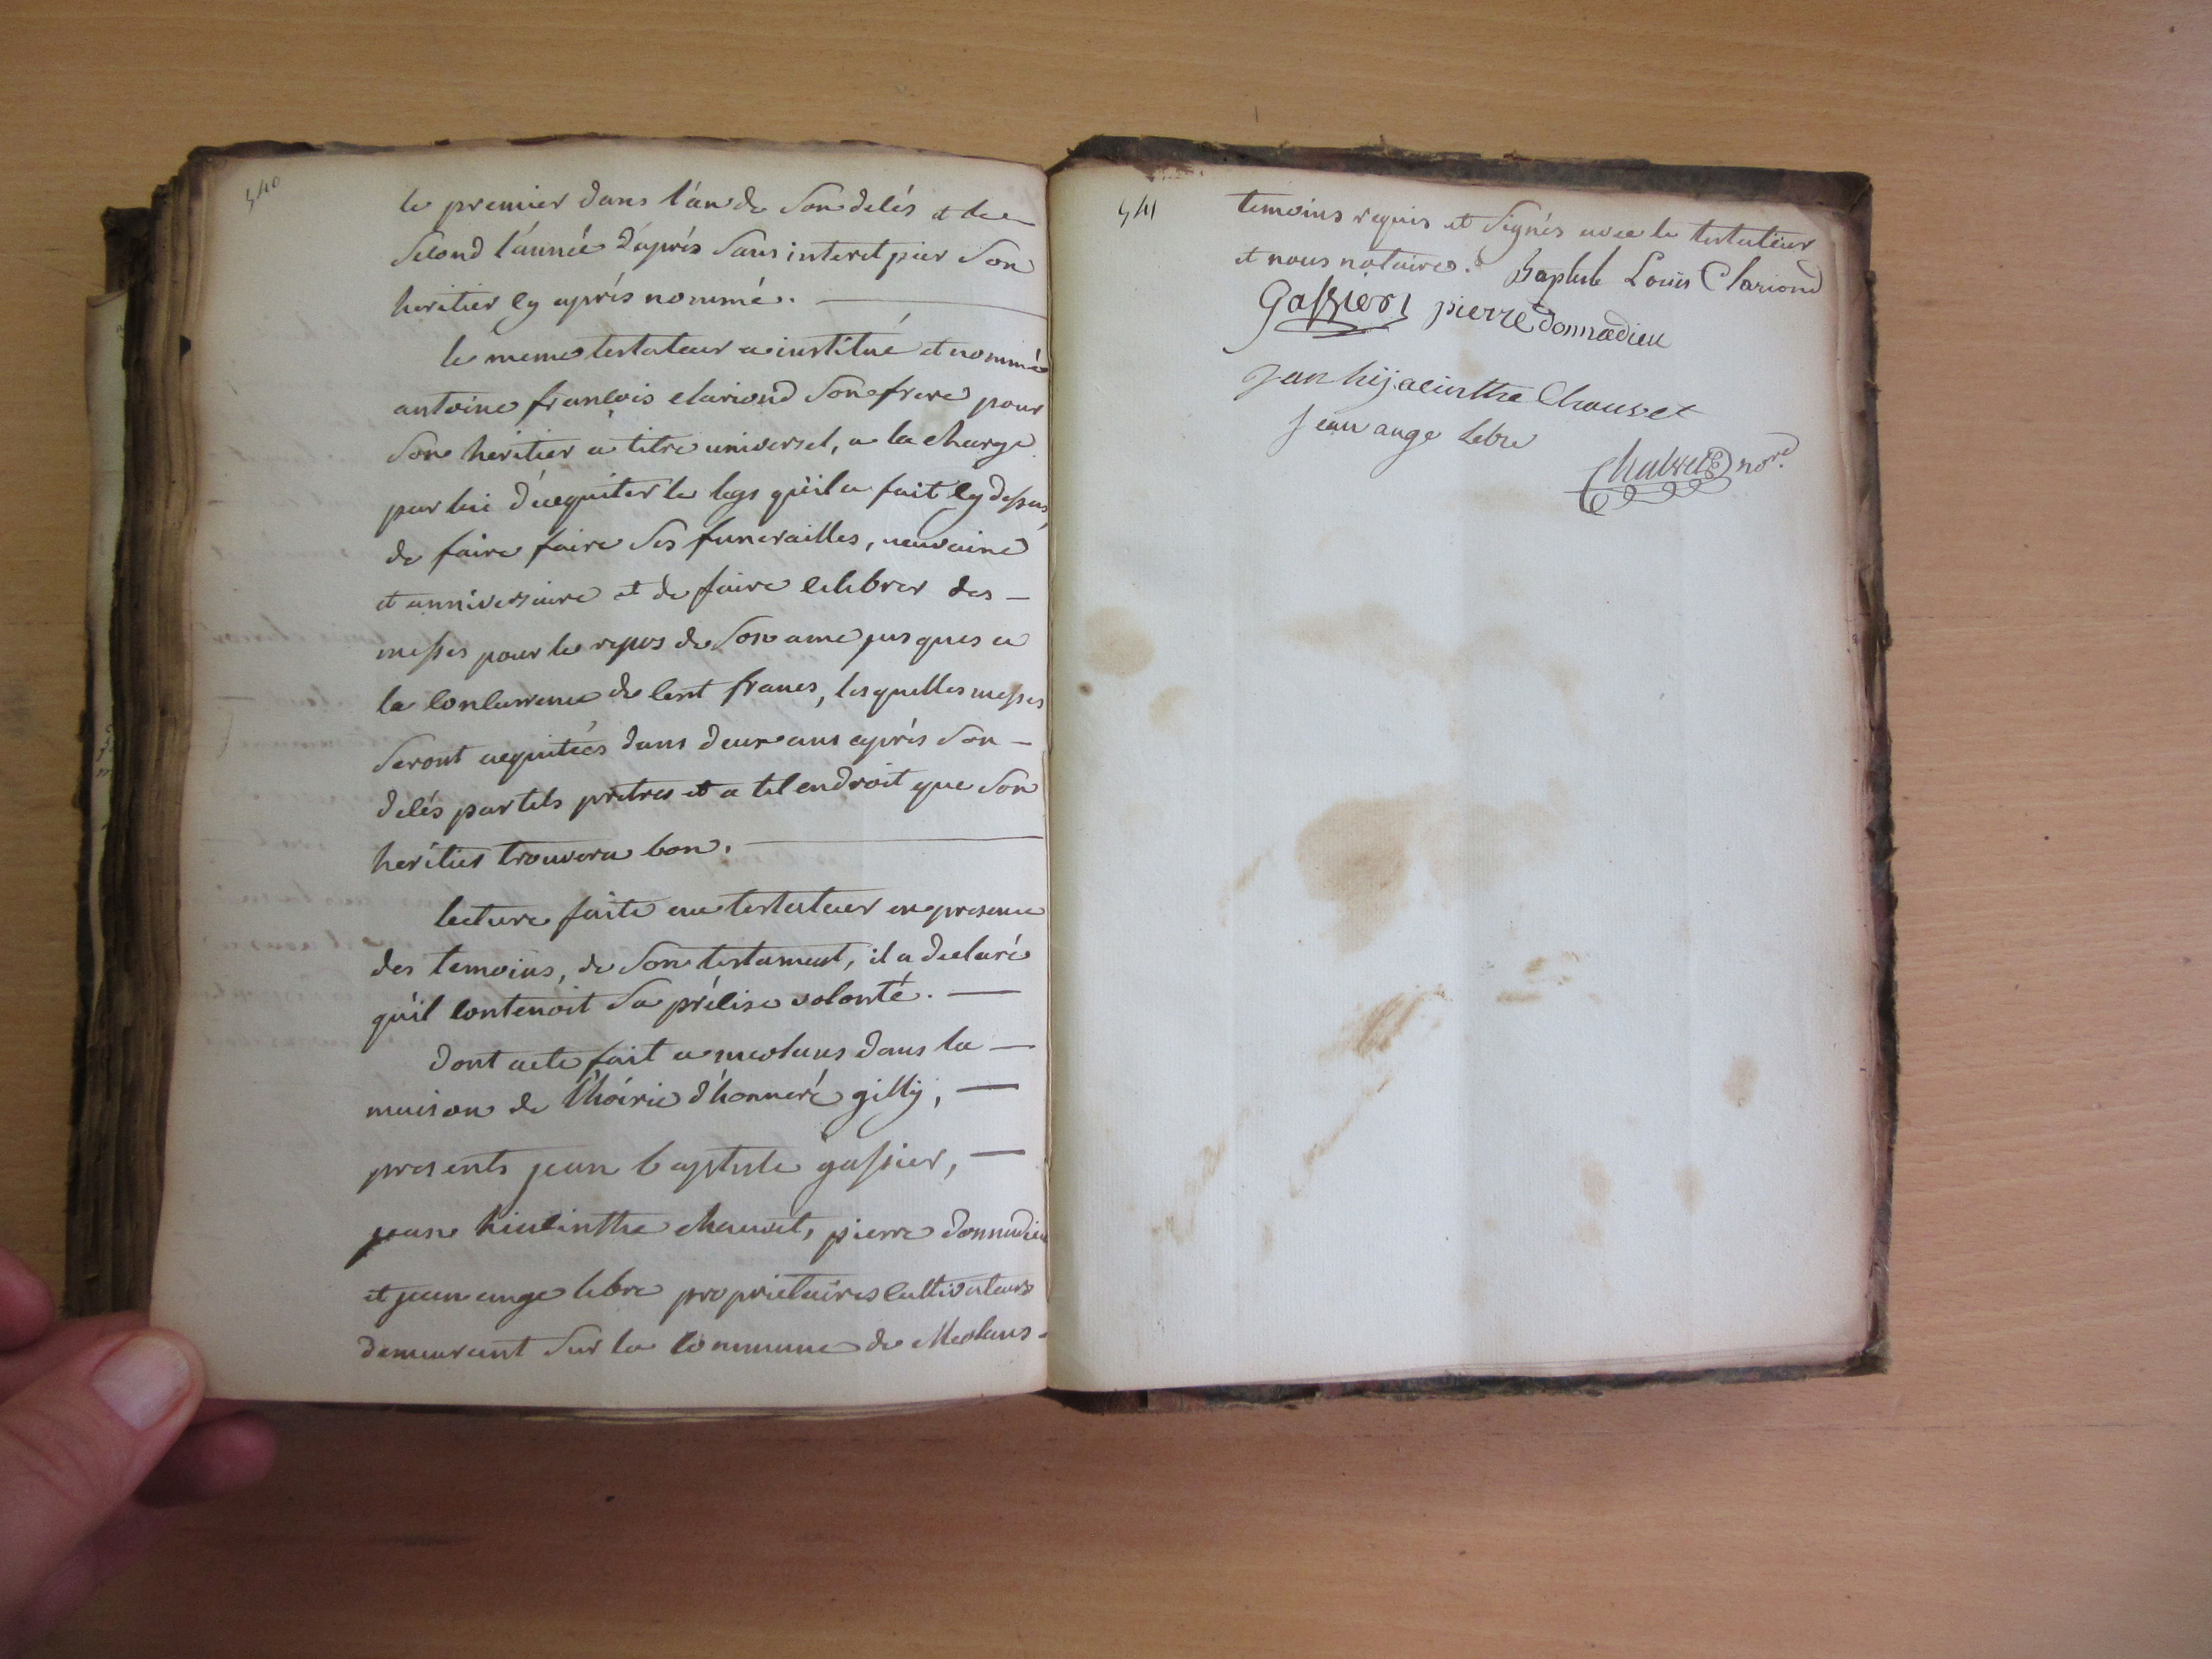 540
le premier dans l'an de son decés et le
second l'année d'aprés sans interet par son
heritier cy aprés nommé.
le meme testateur a institué et nommé
antoine françois clariond son frere pour
son heritier a titre universel, a la charge
par lui d'acquiter le legs qu'il a fait cy dessus,
de faire faire ses funerailles, neuvaine
et anniversaire et de faire celebrer des
messes pour le repos de son ame jusques a
la concurrence de cent francs, lesquelles messes
seront acquitées dans deux ans aprés son
decés par tels pretres et a tel endroit que son
heritier trouvera bon.
lecture faite au testateur en presence
des temoins, de son testament, il a declaré
qu'il contenoit sa précise volonté.
dont acte fait a meolans dans la
maison de l'hoirie d'honnoré gilly,
presents jean baptiste gassier,
jean hiacinthe chauvet, pierre donnadieu
et jean ange lebre proprietaires cultivateurs
demeurant sur la commune de Meolans
541
temoins requis et signés avec le testateur
et nous notaires. Baptiste Louis Clariond
Gassier pierre donnadieu
jan hijacinthe Chauvet
jean ange Lebre
Chauvet nore